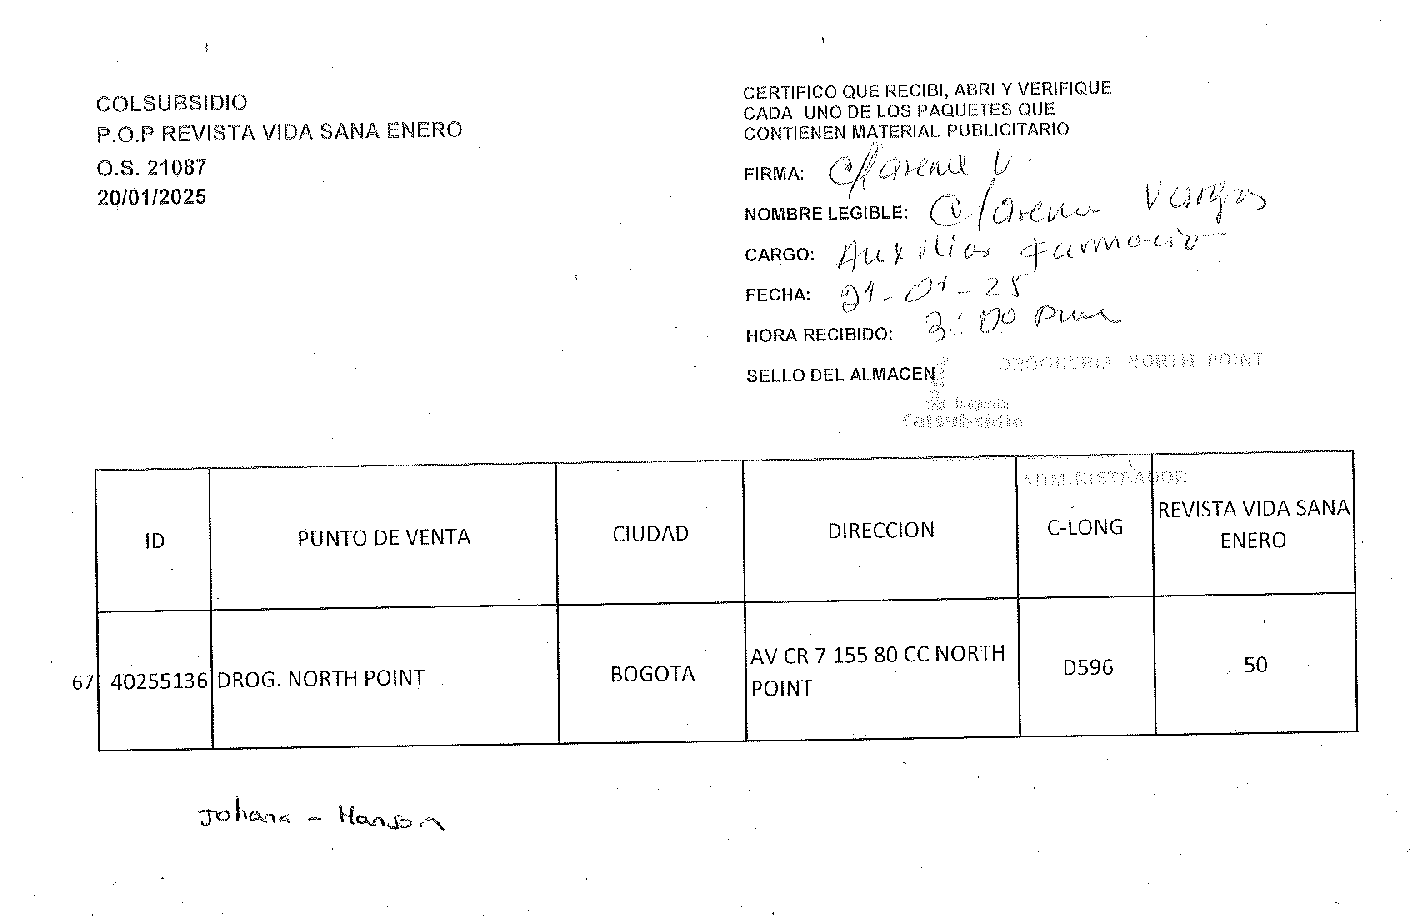 COLSUBSIDIO
P.O.P REVISTA VIDA SANA ENERO
O.S. 21087
20/01/2025
CERTIFICO QUE RECIBI, ABRI Y VERIFIQUE
CADA UNO DE LOS PAQUETES QUE
CONTIENEN MATERIAL PUBLICITARIO
FIRMA: Clarena V.
NOMBRE LEGIBLE: Clarena Vargas
CARGO: Auxiliar farmacia
FECHA: 21-01-25
HORA RECIBIDO: 3:00 pm
SELLO DEL ALMACEN
DROGUERIA NORTH POINT
Colsubsidio
ADMINISTRADOR
ID PUNTO DE VENTA CIUDAD DIRECCION C-LONG REVISTA VIDA SANA
ENERO
67 40255136 DROG. NORTH POINT BOGOTA AV CR 7 155 80 CC NORTH
POINT D596 50
Johana -